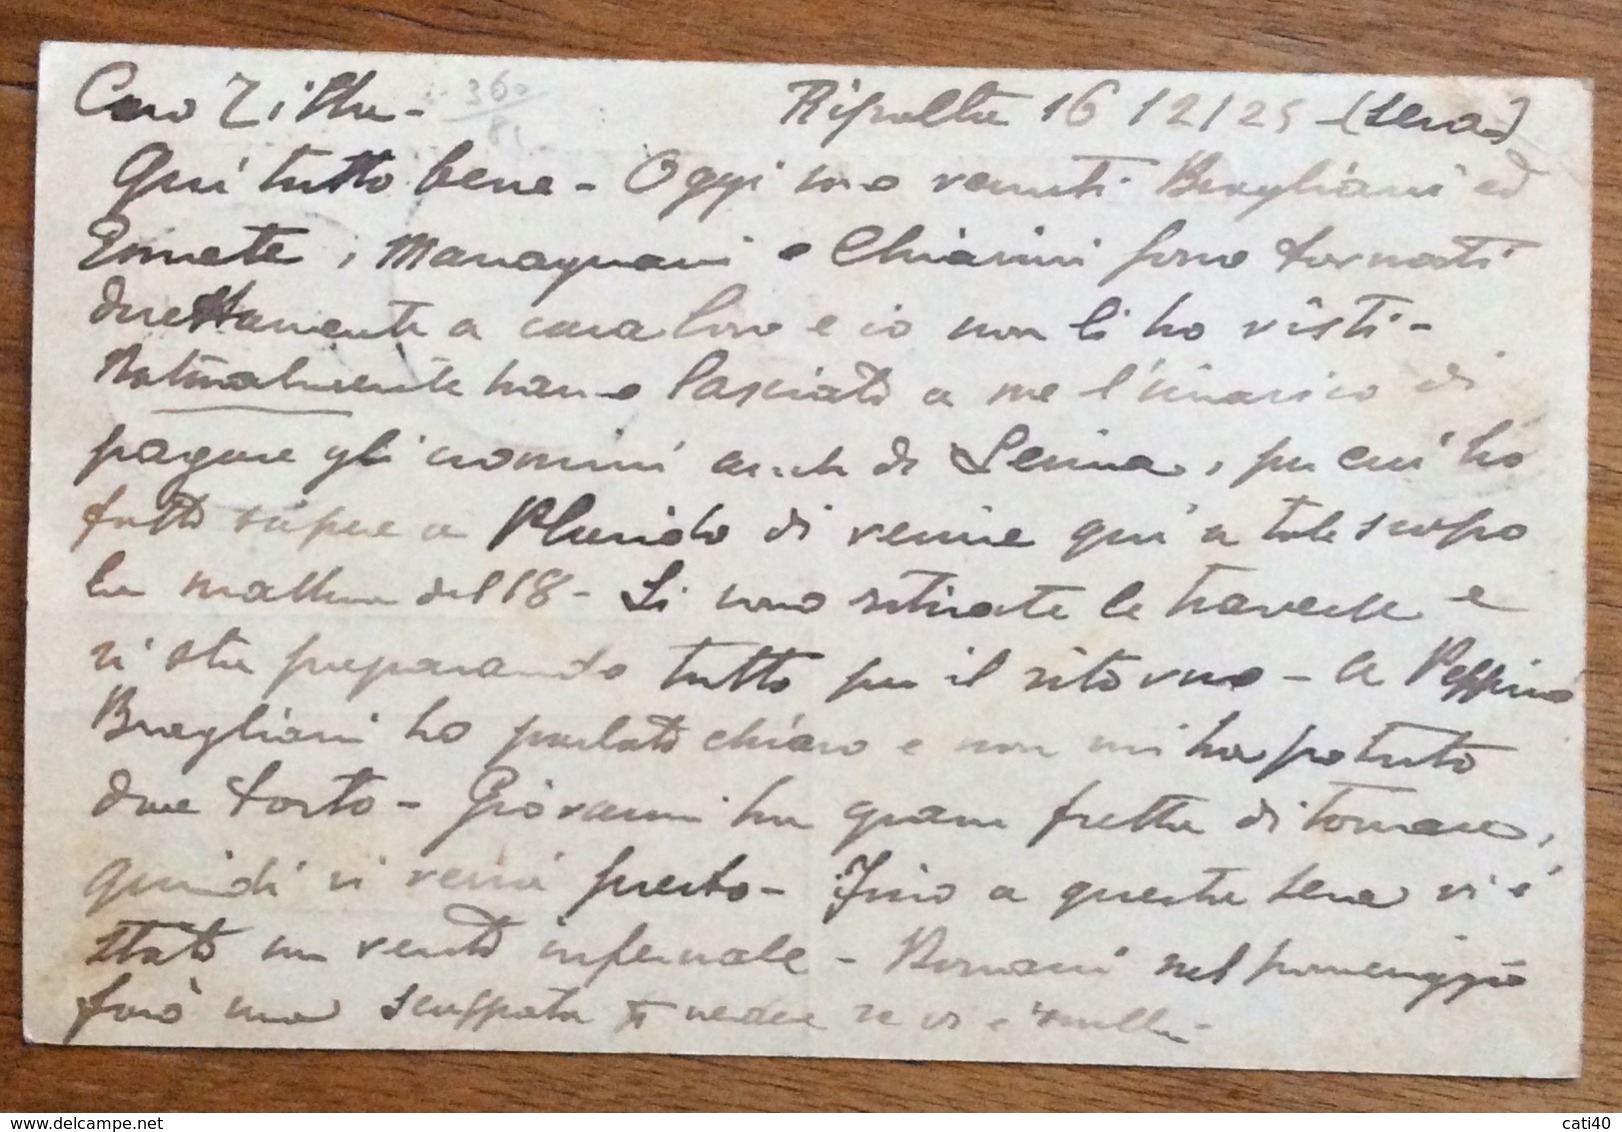 Caro
360
Ripalta 16 12/25 - (sera)
Qui tutto bene - Oggi sono venuti Bragliani ed
, Manaquani e Chiarini sono tornati
direttamente a casa loro e io non li ho visti -
Naturalmente hanno lasciato a me l'incarico di
pagare gli uomini anche di Lesina, per cui ho
fatto sapere a Placido di venire qui a tale scopo
la mattina del 18 - Si sono ritirate le traverse e
si sta preparando tutto per il ritorno - A Peppino
Bragliani ho parlato chiaro e non mi ha potuto
dare torto - Giovanni ha gran fretta di tornare,
quindi si verrà presto - Fino a questa sera vi è
stato un vento infernale - Romani nel pomeriggio
farà una scappata a vedere se vi è
cati40